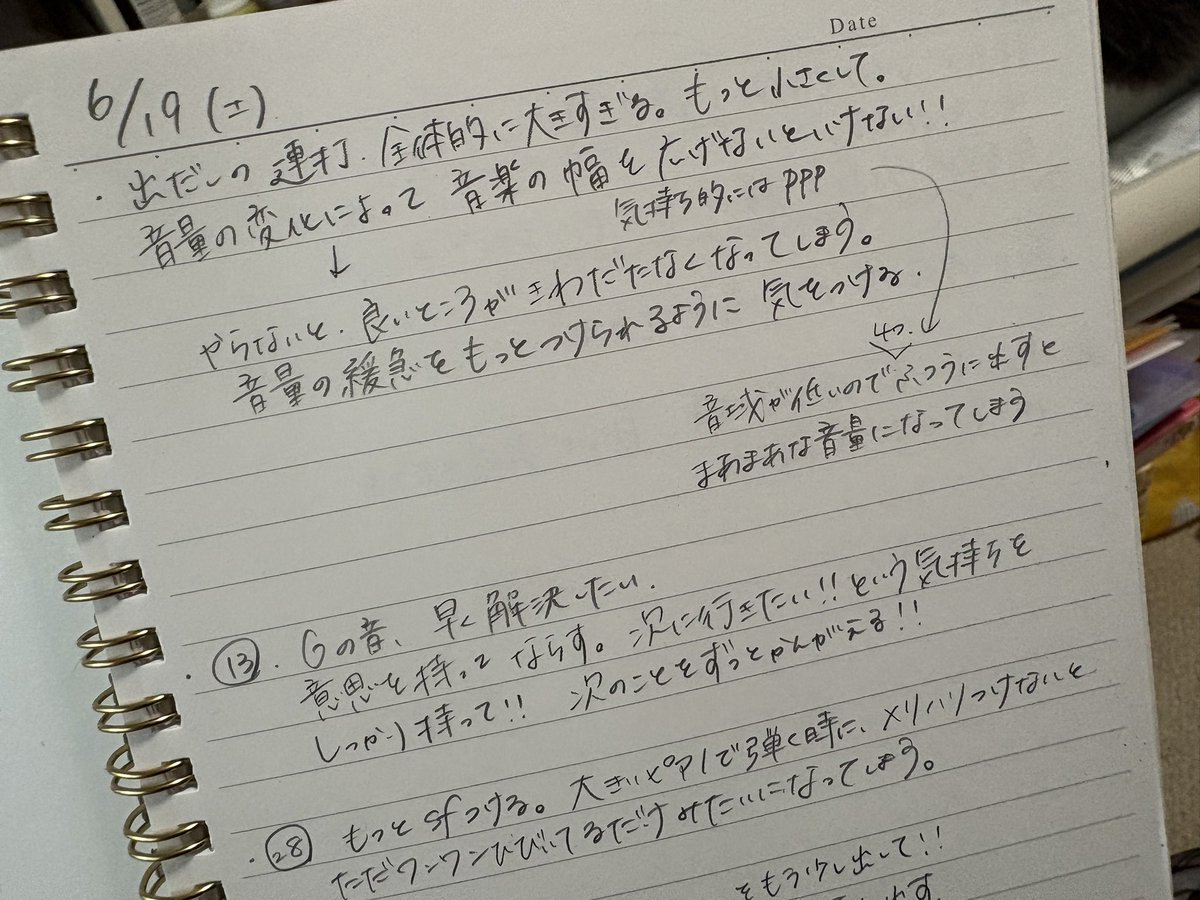 Date
6/19 (土)
・出だしの連打、全体的に大きすぎる。もっと小さくして。
音量の変化によって音楽の幅を広げないといけない!!
気持ち的にはppp
↓
やらないと、良いところがきわだたなくなってしまう。
音量の緩急をもっとつけられるように気をつける.
音域が低いのでふつうに出すと
まあまあな音量になってしまう
・⑬. Gの音、早く解決したい.
意思を持ってならす。次に行きたい!!という気持ちを
しっかり持って!! 次のことをずっとかんがえる!!
・㉘ もっとsfつける。大きいピアノで弾く時に、メリハリつけないと
ただワンワンひびいてるだけみたいになってしまう。
をもう少し出して!!